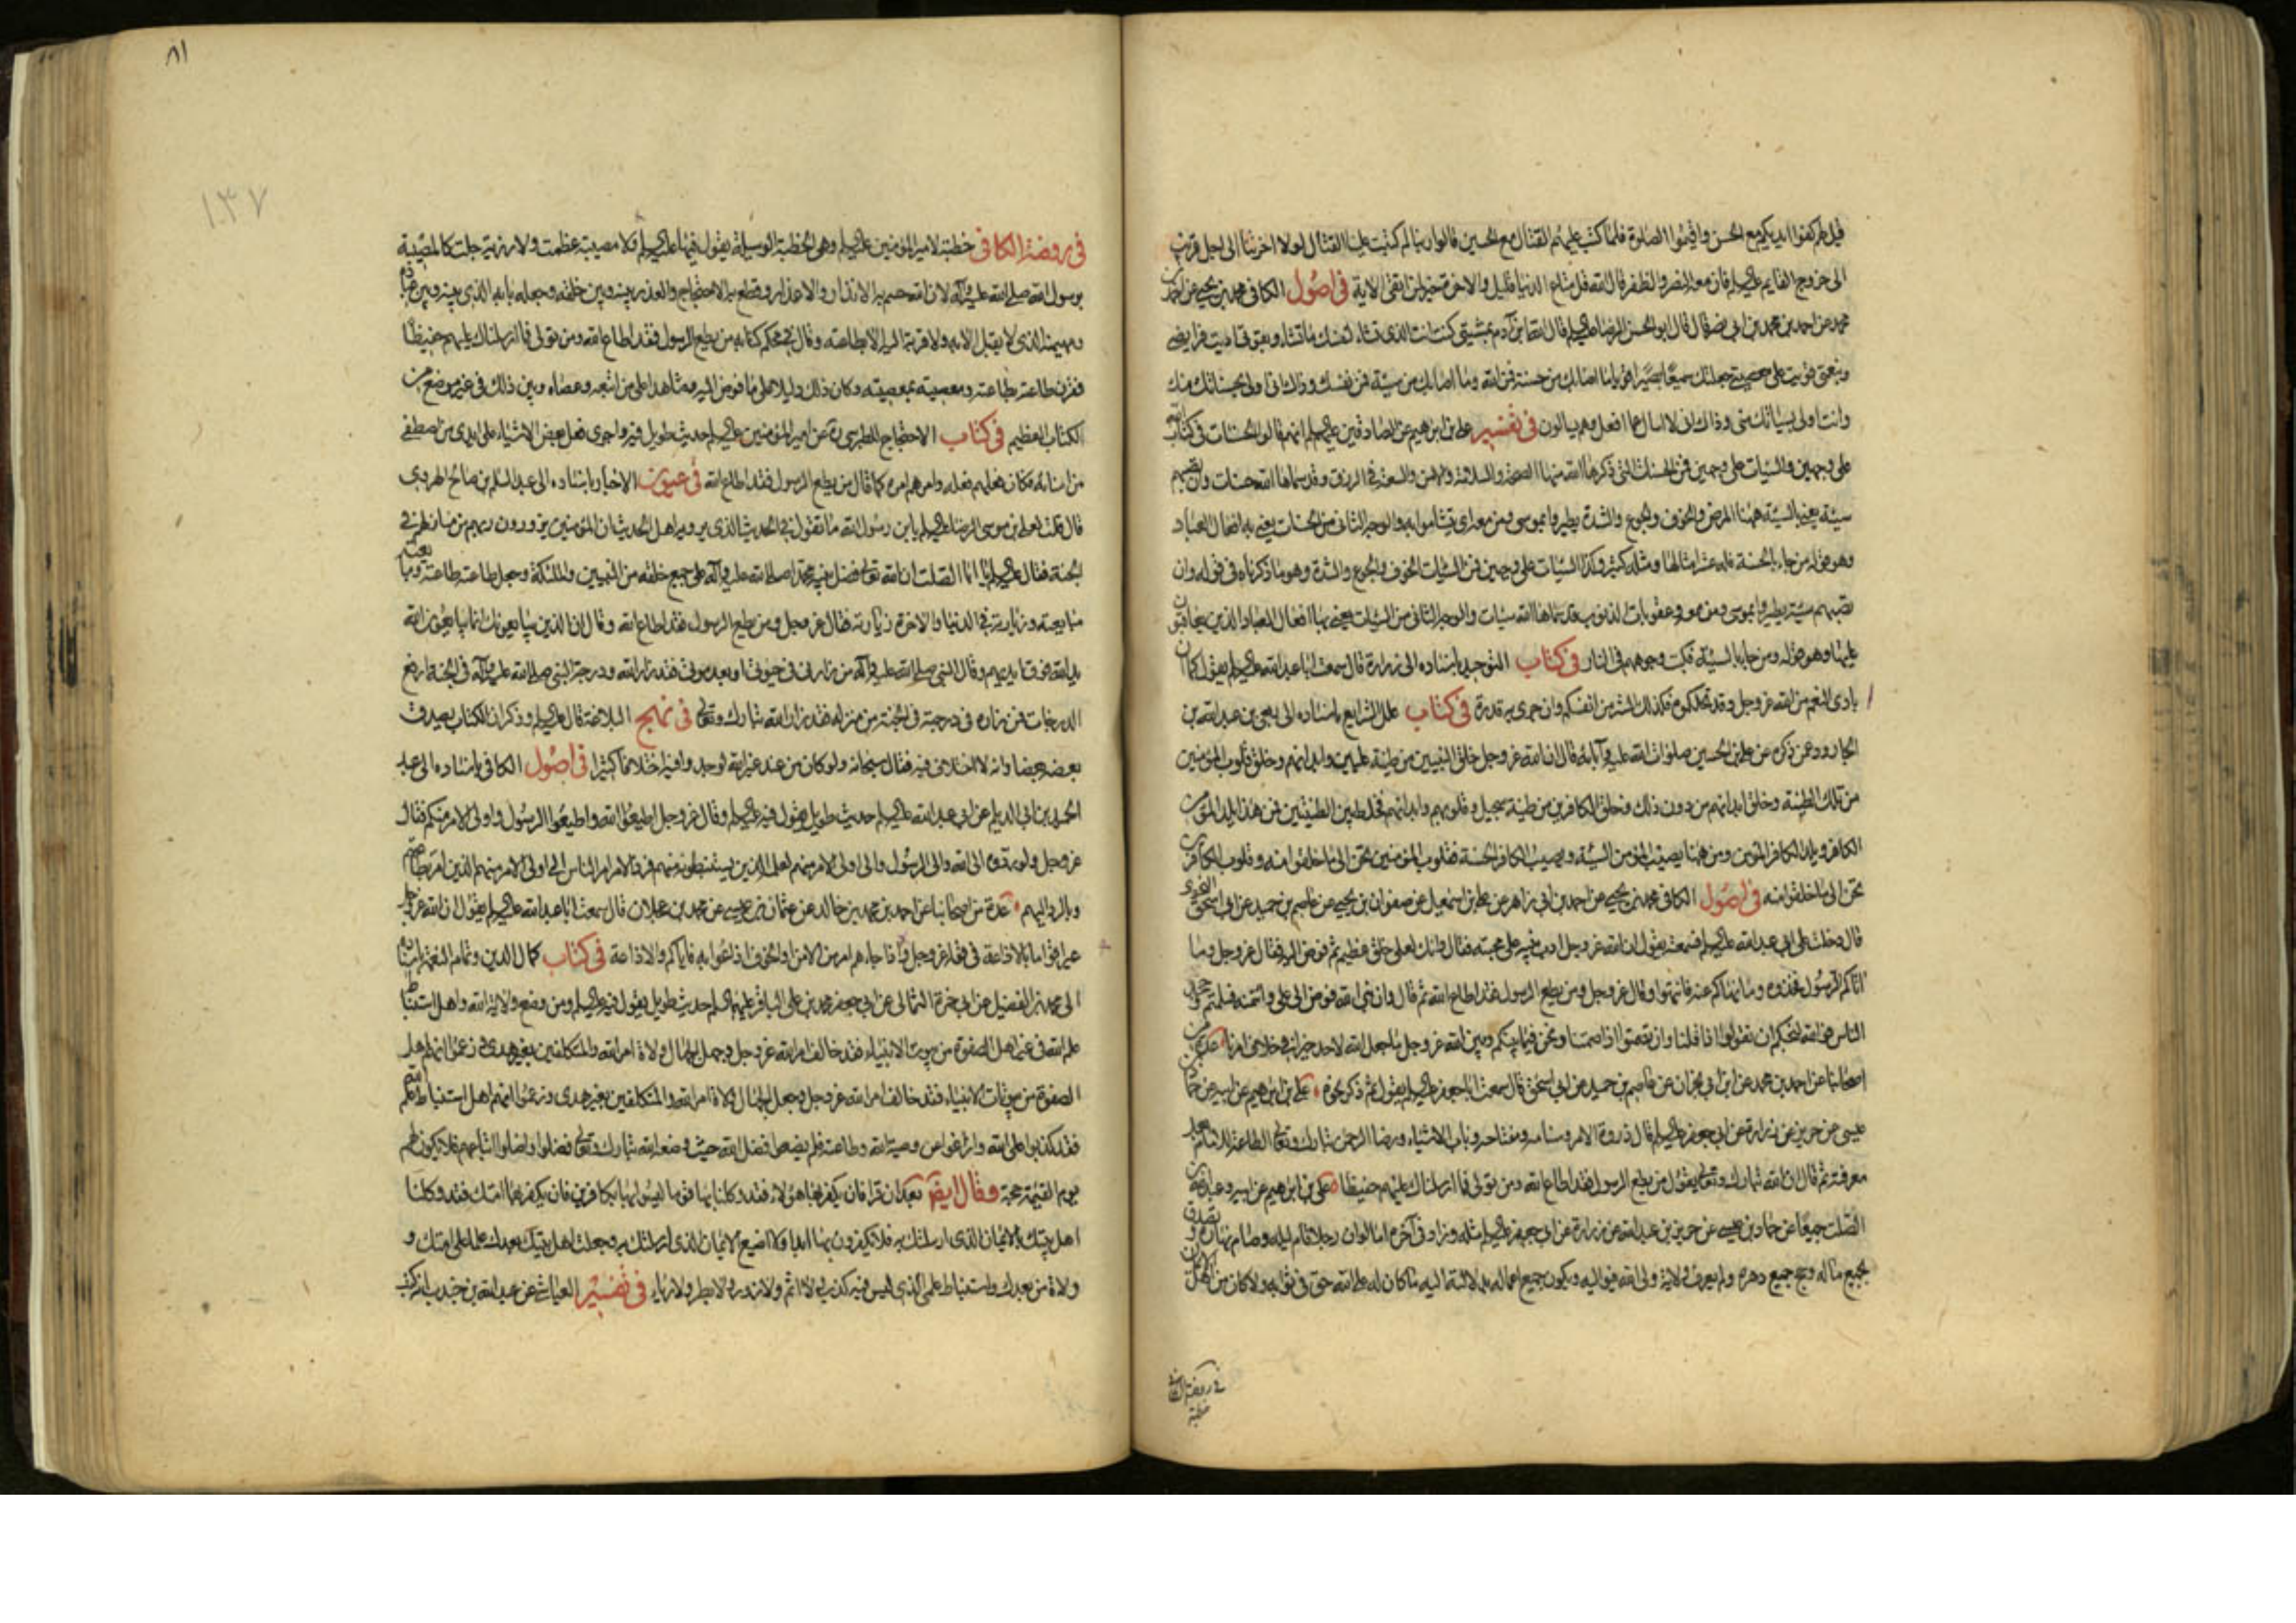 قيل لهم كفوا ايديكم مع الحسن واقيموا الصلوة فلما كتب عليهم القتال مع الحسين قالوا ربنا لم كتبت علينا القتال لولا اخرتنا الى اجل قريب
الى خروج القايم عليه السلم فان معه النصر والظفر قال الله قل متاع الدنيا قليل والاخرة خير لمن اتقى الاية في اصول الكافي محمد بن يحيى عن احمد بن
محمد عن احمد بن محمد بن ابي نصر قال قال ابو الحسن الرضا عليه السلم قال الله يا بن آدم بمشيتي كنت انت الذي تشاء لنفسك ما تشاء وبقوتي اديت فرايضي
وبنعمتي قويت على معصيتي جعلتك سميعا بصيرا قويا ما اصابك من حسنة فمن الله وما اصابك من سيئة فمن نفسك وذاك اني اولى بحسناتك منك
وانت اولى بسيئاتك منى وذاك انى لا اسال عما افعل وهم يسالون في تفسير على بن ابرهيم عن الصادقين عليهم السلم انهم قالوا الحسنات في كتاب الله
على وجهين والسيئات على وجهين فمن الحسنات التي ذكرها الله منها الصحة والسلامة والامن والسعة في الرزق وقد سماها الله حسنات وان تصبهم
سيئة يعنى بالسيئة ههنا المرض والخوف والجوع والشدة يطيروا بموسى ومن معه اى يتشاموا به والوجه الثانى من الحسنات يعنى به افعال العباد
وهو قوله من جاء بالحسنة فله عشر امثالها ومثله كثير وكذا السيئات على وجهين فمن السيئات الخوف والجوع والشدة وهو ما ذكرناه في قوله وان
تصبهم سيئة يطيروا بموسى ومن معه وعقوبات الذنوب قد سماها الله سيئات والوجه الثانى من السيئات يعنى بها افعال العباد الذين يعاقبون
عليها وهو قوله ومن جاء بالسيئة فكبت وجوههم في النار في كتاب التوحيد باسناده الى زرارة قال سمعت ابا عبد الله عليه السلم يقول كما ان
بادى النعم من الله عز وجل وقد نحلكموه فكذلك الشر من انفسكم وان جرى به قدره في كتاب علل الشرايع باسناده الى ربعي بن عبد الله بن
الجارود عمن ذكره عن على بن الحسين صلوات الله عليه وآبائه قال ان الله عز وجل خلق النبيين من طينة عليين وابدانهم وخلق قلوب المؤمنين
من تلك الطينة وخلق ابدانهم من دون ذلك وخلق الكافرين من طينة سجيل وقلوبهم وابدانهم فخلط بين الطينتين فمن هذا يلد المؤمن
الكافر ويلد الكافر المؤمن ومن ههنا يصيب المؤمن السيئة ويصيب الكافر الحسنة فقلوب المؤمنين تحن الى ما خلقوا منه وقلوب الكافرين
تحن الى ما خلقوا منه في اصول الكافي محمد بن يحيى عن احمد بن ابي زاهر عن على بن اسمعيل عن صفوان بن يحيى عن عاصم بن حميد عن ابي اسحق النحوى
قال دخلت على ابي عبد الله عليه السلم فسمعته يقول ان الله عز وجل ادب نبيه على محبته فقال وانك لعلى خلق عظيم ثم فوض اليه فقال عز وجل وما
اتاكم الرسول فخذوه وما نهاكم عنه فانتهوا وقال عز وجل ومن يطع الرسول فقد اطاع الله ثم قال وان نبى الله فوض الى على وائتمنه فسلمتم وجحد
الناس فوالله لنحبكم ان تقولوا اذا قلنا وان تصمتوا اذا صمتنا ونحن فيما بينكم وبين الله عز وجل ما جعل الله لاحد خيرا في خلاف امرنا عدة من
اصحابنا عن احمد بن محمد عن ابن ابي نجران عن عاصم بن حميد عن ابي اسحق قال سمعت ابا جعفر عليه السلم يقول ثم ذكر نحوه على بن ابرهيم عن ابيه عن حماد بن
عيسى عن حريز عن زرارة عن ابي جعفر عليه السلم قال ذروة الامر وسنامه ومفتاحه وباب الاشياء ورضا الرحمن تبارك وتعالى الطاعة للامام بعد
معرفته ثم قال ان الله تبارك وتعالى يقول من يطع الرسول فقد اطاع الله ومن تولى فما ارسلناك عليهم حفيظا على بن ابرهيم عن ابيه وعبد الله بن
الصلت جميعا عن حماد بن عيسى عن حريز بن عبد الله عن زرارة عن ابي جعفر عليه السلم مثله وزاد في آخره اما لو ان رجلا قام ليله وصام نهاره وتصدق
بجميع ماله وحج جميع دهره ولم يعرف ولاية ولى الله فيواليه ويكون جميع اعماله بدلالته اليه ما كان له على الله حق في ثوابه ولا كان من اهل الايمان
في روضة الكافي
خطبة
٨١
١٣٧
في روضة الكافي خطبة لامير المؤمنين عليه السلم وهى الخطبة الوسيلة يقول فيها عليه السلم فلا مصيبة عظمت ولا رزية جلت كالمصيبة
برسول الله صلى الله عليه وآله لان الله حسم به الانذار والاعذار وقطع به الاحتجاج والعذر بينه وبين خلقه وجعله بابه الذي بينه وبين عباده
ومهيمنه الذي لا يقبل الا به ولا قربة اليه الا بطاعته وقال في محكم كتابه من يطع الرسول فقد اطاع الله ومن تولى فما ارسلناك عليهم حفيظا
فقرن طاعته بطاعته ومعصيته بمعصيته وكان ذلك دليلا على ما فوض اليه وشاهدا على من اتبعه وعصاه وبين ذلك في غير موضع من
الكتاب العظيم في كتاب الاحتجاج للطبرسى ره عن امير المؤمنين عليه السلم حديث طويل فيه واجرى فعل بعض الاشياء على ايدى من اصطفى
من امنائه فكان فعلهم فعله وامرهم امره كما قال من يطع الرسول فقد اطاع الله في عيون الاخبار باسناده الى عبد السلم بن صالح الهروى
قال قلت لعلى بن موسى الرضا عليه السلم يا بن رسول الله ما تقول في الحديث الذي يرويه اهل الحديث ان المؤمنين يزورون ربهم من منازلهم في
الجنة فقال عليه السلم يا ابا الصلت ان الله تعالى فضل نبيه محمدا صلى الله عليه وآله على جميع خلقه من النبيين والملئكة وجعل طاعته طاعته ومبايعته
مبايعته وزيارته في الدنيا والاخرة زيارته فقال عز وجل ومن يطع الرسول فقد اطاع الله وقال ان الذين يبايعونك انما يبايعون الله
يد الله فوق ايديهم وقال النبي صلى الله عليه وآله من زارنى في حيوتى او بعد موتى فقد زار الله ودرجة النبي صلى الله عليه وآله في الجنة ارفع
الدرجات فمن زاره في درجته في الجنة من منزله فقد زار الله تبارك وتعالى في نهج البلاغة قال عليه السلم وذكر ان الكتاب يصدق
بعضه بعضا وانه لا اختلاف فيه فقال سبحانه ولو كان من عند غير الله لوجدوا فيه اختلافا كثيرا في اصول الكافي باسناده الى عبد
الحميد بن ابي الديلم عن ابي عبد الله عليه السلم حديث طويل يقول فيه عليه السلم وقال عز وجل اطيعوا الله واطيعوا الرسول واولى الامر منكم فقال
عز وجل ولو ردوه الى الله والى الرسول والى اولى الامر منهم لعلمه الذين يستنبطونه منهم فرد الامر امر الناس الى اولى الامر منهم الذين امر بطاعتهم
وبالرد اليهم عدة من اصحابنا عن احمد بن محمد بن خالد عن عثمان بن عيسى عن محمد بن عجلان قال سمعت ابا عبد الله عليه السلم يقول ان الله عز وجل
عير اقواما بالاذاعة في قوله عز وجل واذا جاءهم امر من الامن او الخوف اذاعوا به فاياكم والاذاعة في كتاب كمال الدين وتمام النعمة باسناده
الى محمد بن الفضيل عن ابي حمزة الثمالى عن ابي جعفر محمد بن على الباقر عليهما السلم حديث طويل يقول فيه عليه السلم ومن وضع ولاية الله واهل استنباط
علم الله في غير اهل الصفوة من بيوت الانبياء فقد خالف امر الله عز وجل وجعل الجهال ولاة امر الله والمتكلفين بغير هدى وزعموا انهم اهل
الصفوة من بيوتات الانبياء فقد خالف امر الله عز وجل وجعل الجهال ولاة امر الله والمتكلفين بغير هدى وزعموا انهم اهل استنباط علم الله
فقد كذبوا على الله وزاغوا عن وصية الله وطاعته فلم يضعوا فضل الله حيث وضعه الله تبارك وتعالى فضلوا واضلوا اتباعهم فلا يكون لهم
يوم القيمة حجة وقال ايضا بعد ان قرا فان يكفر بها هؤلاء فقد وكلنا بها قوما ليسوا بها بكافرين فان يكفر بها امتك فقد وكلنا
اهل بيتك بالايمان الذي ارسلتك به فلا يكفرون بها ابدا فلا اضيع الايمان الذي ارسلتك به وجعلت اهل بيتك بعدك علما على امتك و
ولاة من بعدك واستنباط علمى الذي ليس فيه كذب ولا اثم ولا وزر ولا بطر ولا رياء في تفسير العياشي عن عبد الله بن جندب